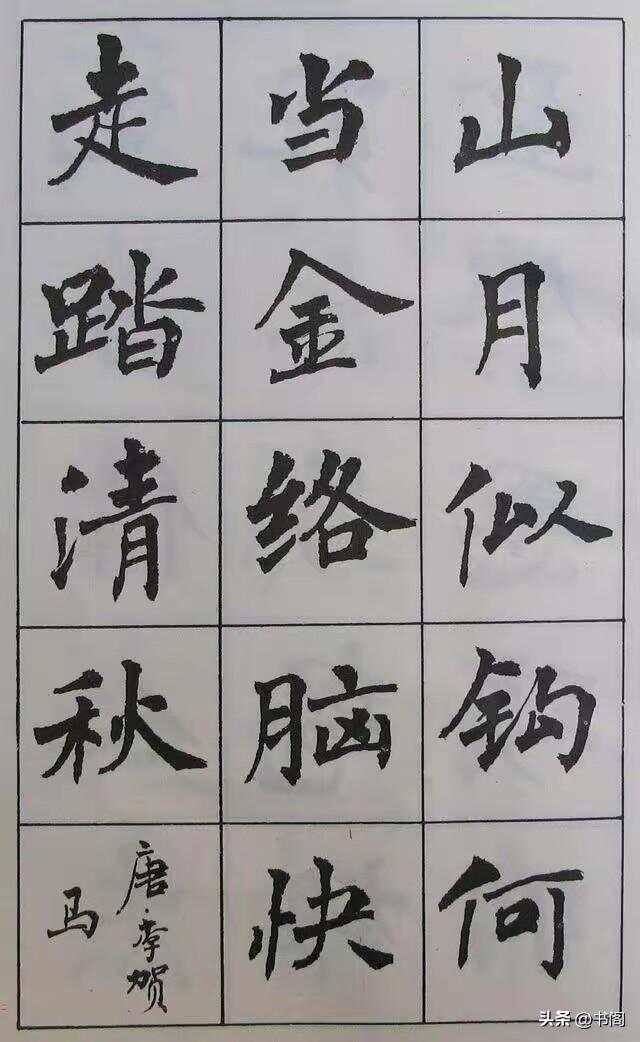 山月似钩何
当金络脑快
走踏清秋
唐·李贺
马
头条@书阁